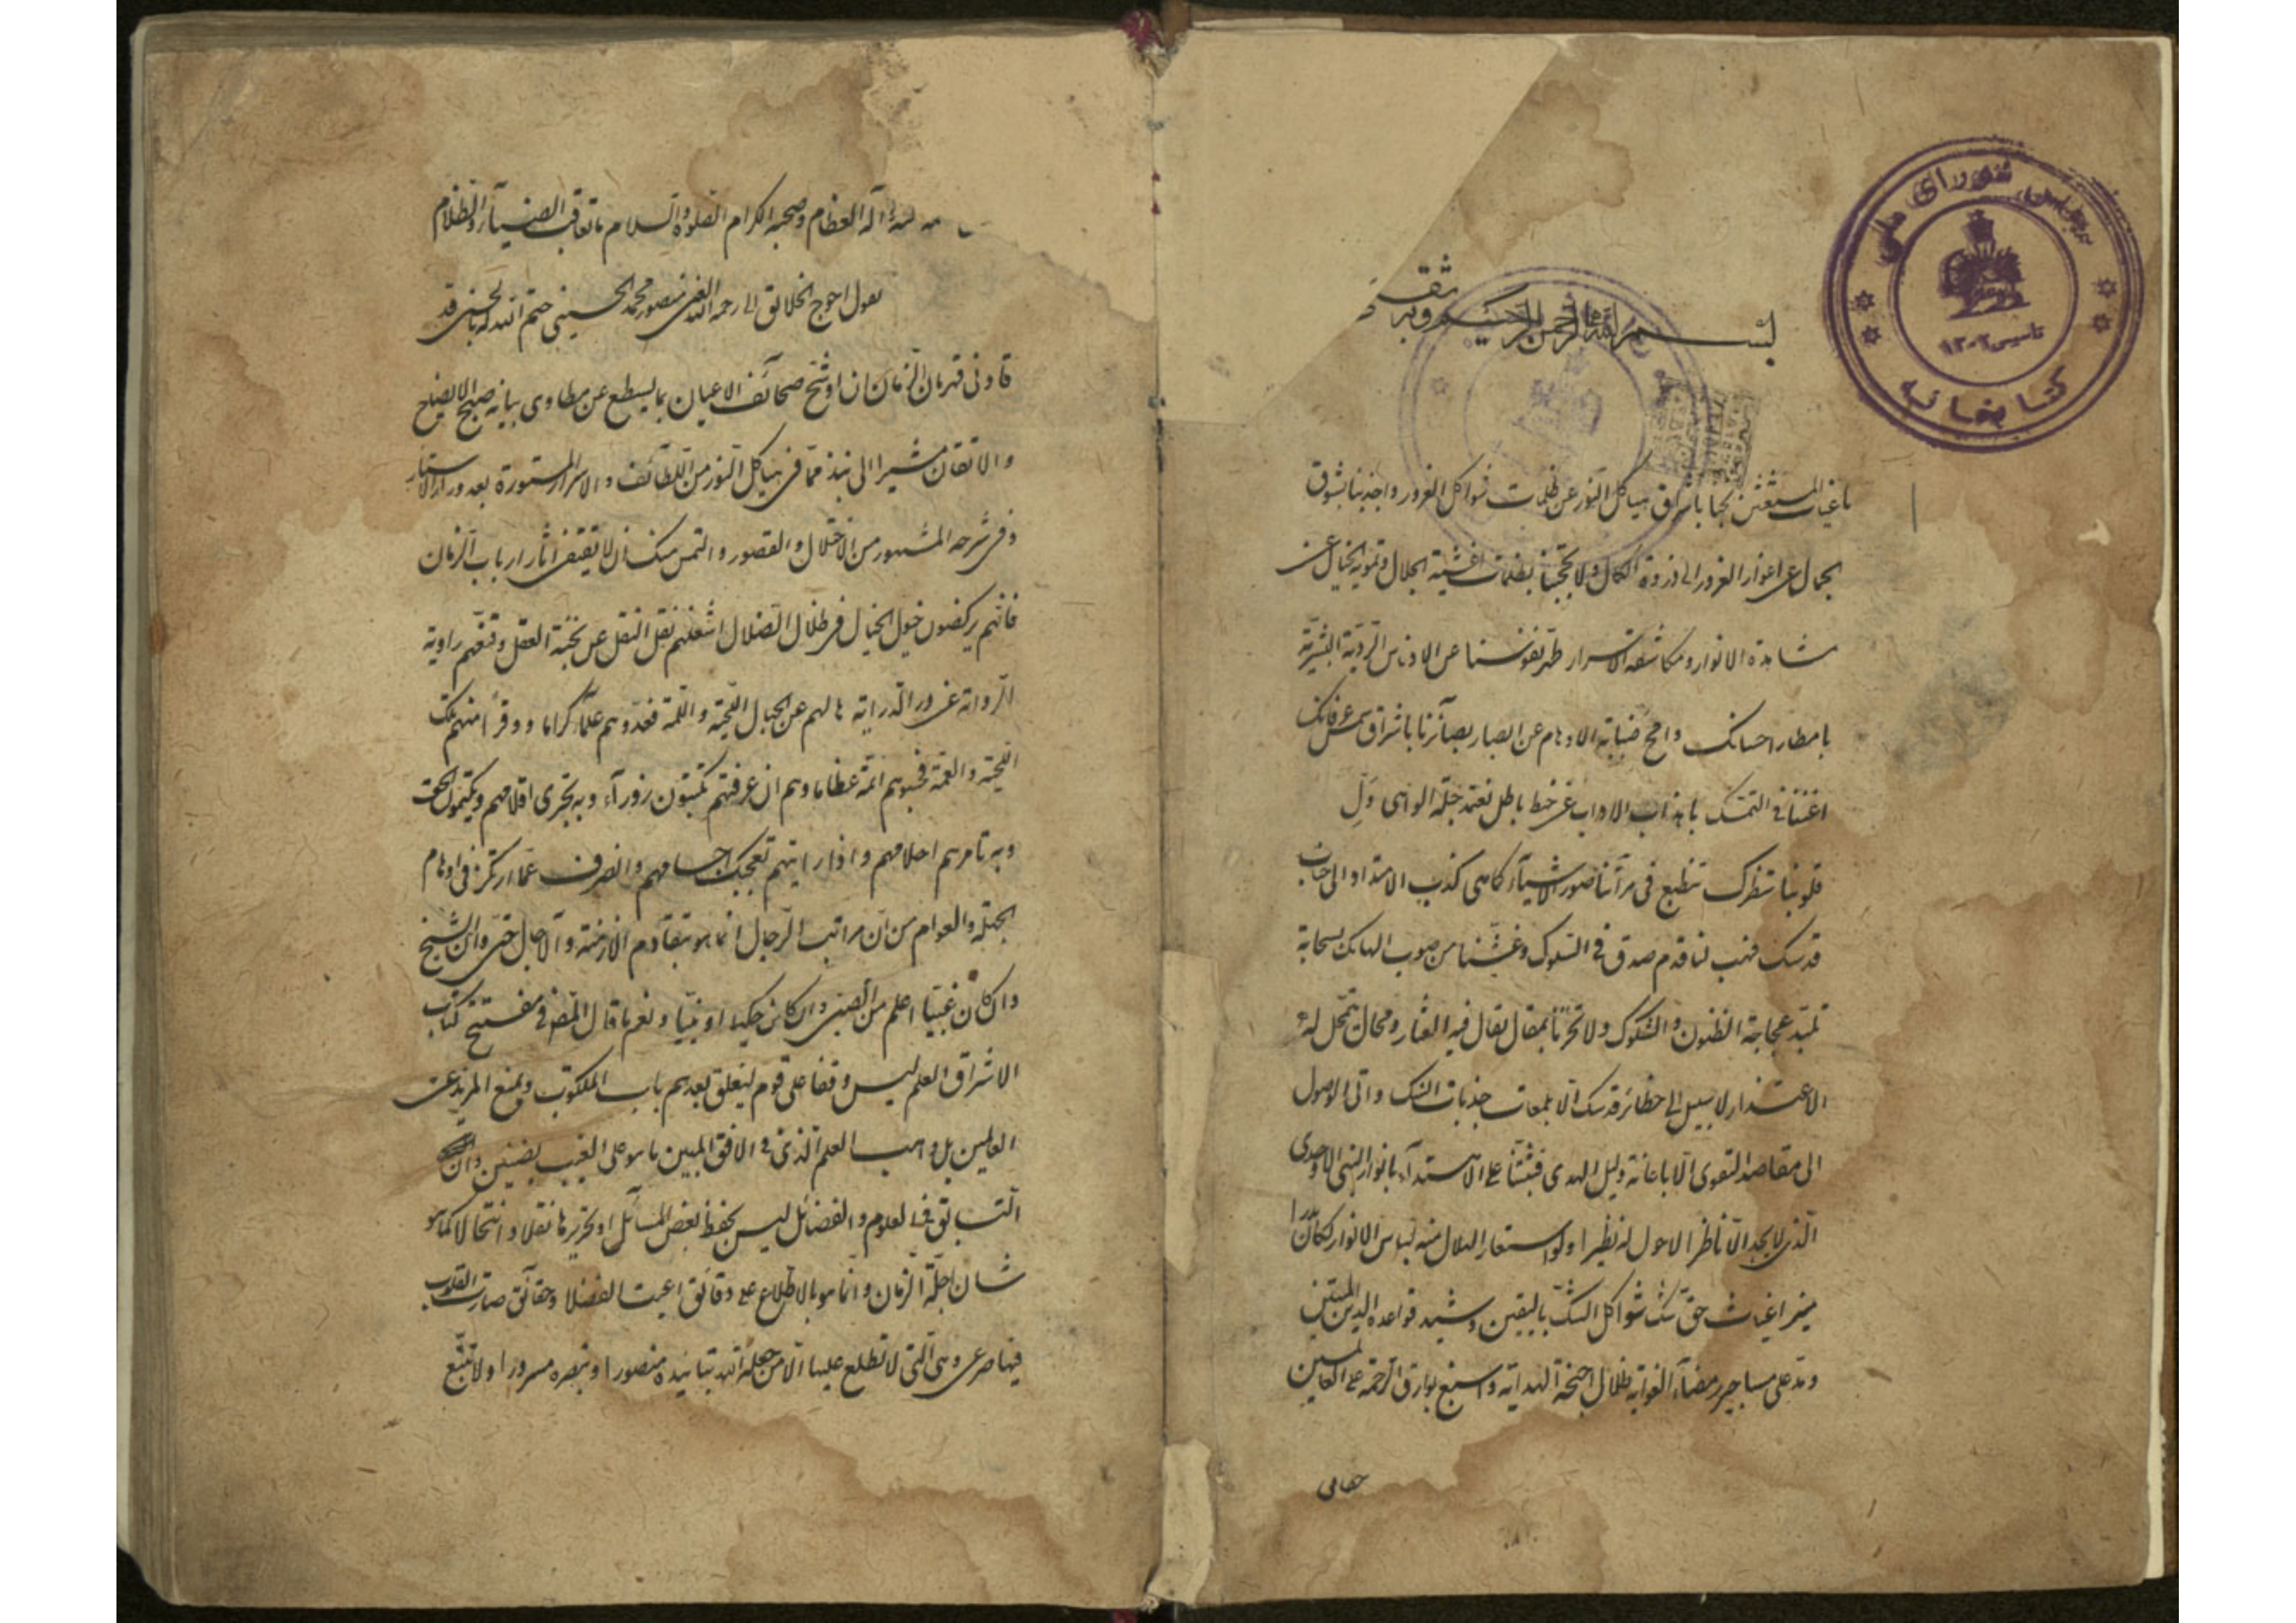 مجلس شورای ملی
تاسیس ۱۳۰۲
کتابخانه
بسم الله الرحمن الرحیم وبه ثقتی
یا غیاث المستغیثین نجنا باشراق هیاکل النور عن ظلمات شواکل الغرور واجذبنا بشوق
الجمال عن اغوار الغرور الی ذروة الکمال ولا تحجبنا بظلمات اغشیة الجلال وتمویه الخیال عن
مشاهدة الانوار ومکاشفة الاسرار طهر نفوسنا عن الادناس الردیة البشریة
بامطار احسانک وامح ضبابة الاوهام عن ابصار بصائرنا باشراق شمس عرفانک
اغننا فی التمسک باهداب الاداب عن خطا باطل
قلوبنا شطرک تنطبع فی مرآتنا صور الاشیاء کما هی الی جناب
قدسک فهب لنا قدم صدق فی السلوک وغشنا من صوب الهامک بسحابة
تلبد عجاجة الظنون والشکوک ولا تخزنا بمقال یقال فیه العثار ومحال یتمحل له
الاعتذار لا سبیل الی حظائر قدسک الا بلمعات جذبات انسک وانی الوصول
الی مقاصد التقوی الا باعانة دلیل الهدی فثبتنا علی الاهتداء بانوار النبی الاوحدی
الذی لا یجد الا ناظر الاحول له نظیرا ولو استعار الهلال منه لباس الانوار لکان بدرا
منیرا غیاث حق شک شواکل الشک بالیقین وشید قواعد الدین المتین
ومد علی هواجر رمضاء الغوایة ظلال اجنحة الهدایة واسبغ بوارق الرحمة علی العالمین
آله العظام وصحبه الکرام الصلوة والسلام ما تعاقب الضیاء والظلام
یقول احوج الخلائق الی رحمة الله الغنی منصور بن محمد الحسینی ختم الله له بالحسنی قد
قادنی قهرمان الزمان ان اوشح صحائف الاعیان بما یسطع عن مطاوی بیانه صبح الایضاح
والاتقان مشیرا الی نبذ مما فی هیاکل النور من اللطائف والاسرار المستورة بعد وراء الاستار
وفی شرحه المشهور من الاختلال والقصور والتمس منک ان لا تقتفی اثار ارباب الزمان
فانهم یرکضون خیول الخیال فی ظلال الضلال اشغلهم نقل النقل عن نخبة العقل وقنعهم روایة
الروایة عن ور الدرایة مالهم عن الجبال اللحیة واللمة فعدوهم علماء کراما ووقرا منهم تلک
اللحیة والعمة فحسبوهم ائمة عظاما وهم ان عرفتهم تکتبون زورا وبه تجری اقلامهم ویکتمون الحق
وبه تامرهم احلامهم واذا رایتهم تعجبک اجسامهم وانصرف عما ارتکز فی اوهام
الجهلة والعوام من ان مراتب الرجال انما هو بتقادم الازمنة والآجال حتی وان الشیخ
وان کان غبیا اعلم من الصبی وان کان حکیما او نبیا ونعم ما قال المص فی مفتتح کتاب
الاشراق العلم لیس وقفا علی قوم لیغلق بعدهم باب الملکوت ویمنع المزید عن
العالمین بل واهب العلم الذی فی الافق المبین ما هو علی الغیب بضنین وان
التسابق فی العلوم والفضائل لیس بحفظ بعض المسائل او تحریرها نقلا وانتحالا کما هو
شان اجلة الزمان وانما هو بالاطلاع علی دقائق اعیت الفضلا وحقائق صارت القلوب
فیها صرعی وهی التی لا تطلع علیها الا من جعله الله بتاییده منصورا وبنصره مسرورا ولا تتبع